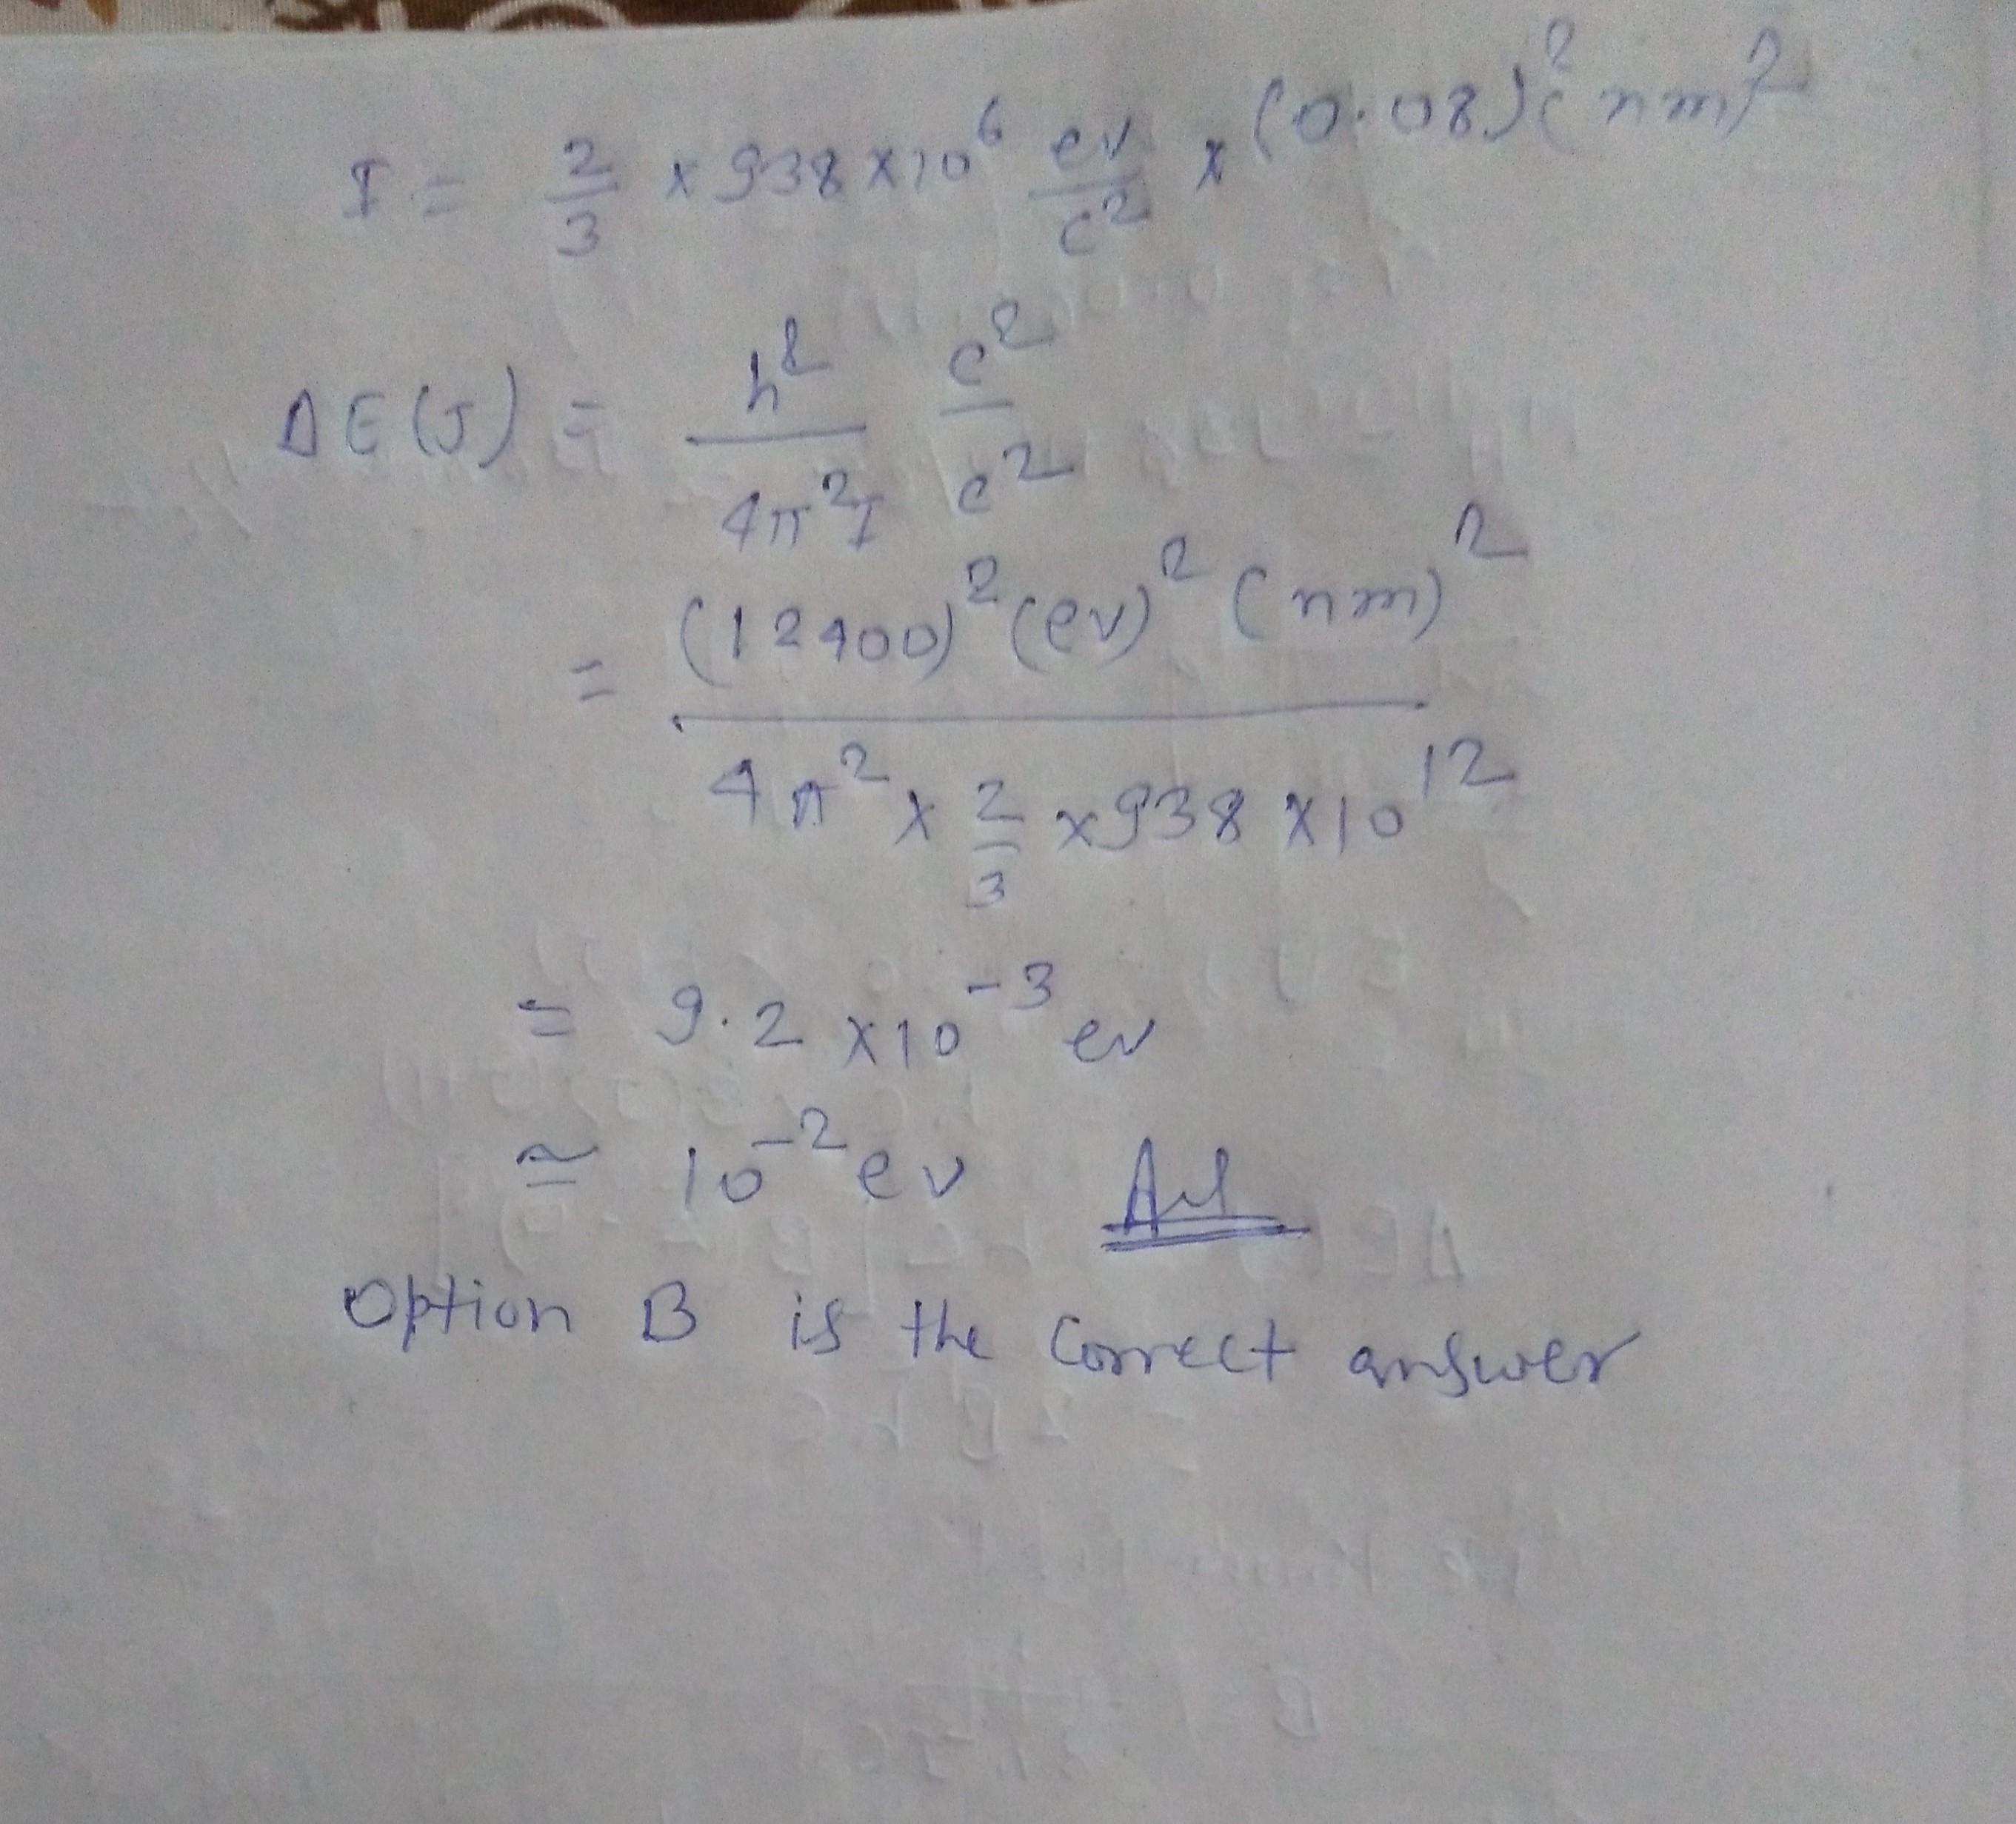 I = 2/3 × 938 × 10^6 ev/c^2 × (0.08)^2 (nm)^2
ΔE(J) = h^2/4π^2I c^2/c^2
= (12400)^2 (ev)^2 (nm)^2 / 4π^2 × 2/3 × 938 × 10^12
= 9.2 × 10^-3 ev
≃ 10^-2 ev Ans
Option B is the correct answer